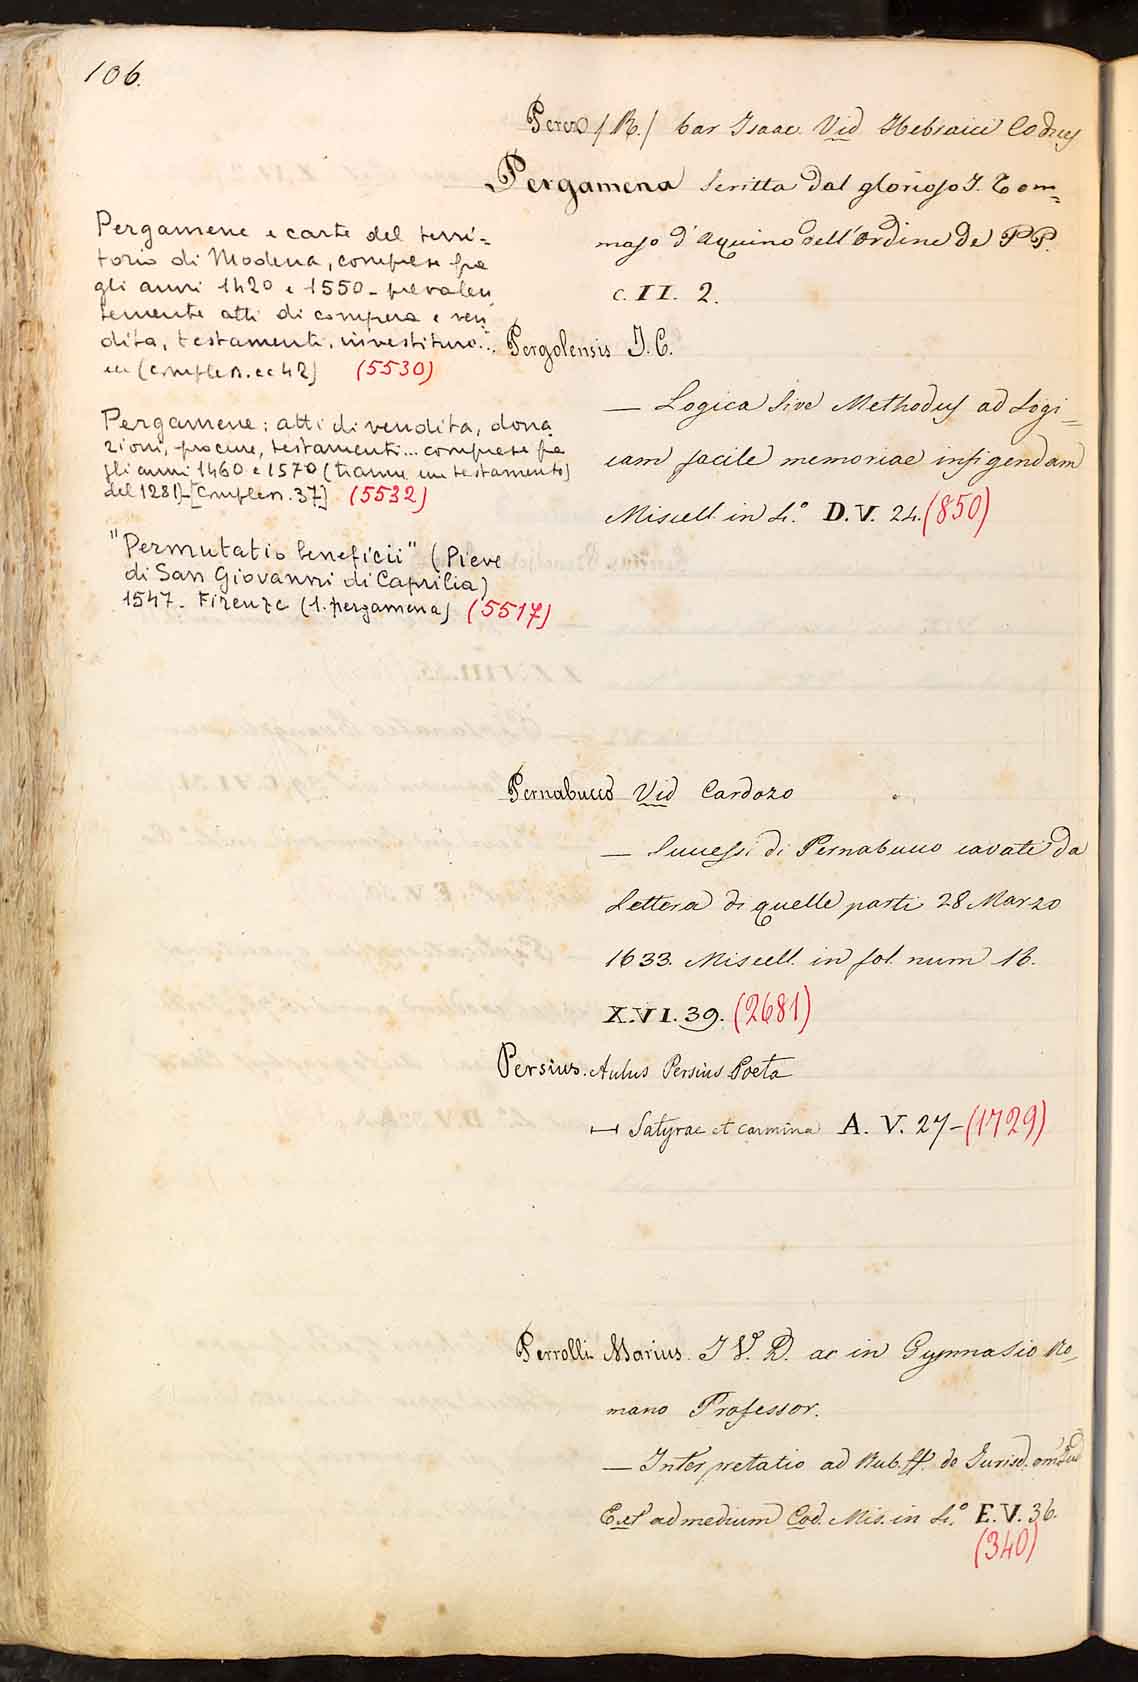 106.
Perez /R./ bar Isaac Vid Hebraici Codices
Pergamena scritta dal glorioso S. Tom=
maso d'Aquino dell'Ordine de PP.
c. II. 2.
Pergolensis J. C.
— Logica sive Methodus ad Logi=
cam facile memoriae infigendam
Miscell. in 4.° D. V. 24. (850)
Pernabucco Vid Cardozo
— Successi di Pernabuco cavati da
Lettera di quelle parti 28 Marzo
1633. Miscell. in fol. num 16.
X.VI. 39. (2681)
Persius. Aulus Persius Poeta
— Satyrae et carmina A. V. 27 – (1729)
Perrolli Marius J. V. D. ac in Gymnasio Ro=
mano Professor.
— Interpretatio ad Rub. ff. de Jurisd. om. Jud
Est ad medium Cod. Mis. in 4.° E. V. 36.
(340)
Pergamene e carte del terri=
torio di Modena, comprese fra
gli anni 1420 e 1550 – prevalen
temente atti di compera e ven
dita, testamenti, investiture...
(complen. cc 42) (5530)
Pergamene: atti di vendita, dona
zioni, procure, testamenti... comprese fra
gli anni 1460 e 1570 (tranne un testamento
del 1281) – [Complen. 37] (5532)
"Permutatio beneficii" (Pieve
di San Giovanni di Caprilia)
1547 – Firenze (1. pergamena) (5517)